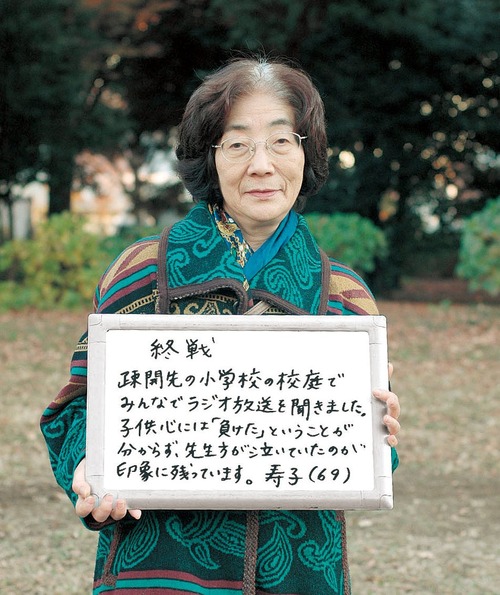 終戦
疎開先の小学校の校庭で
みんなでラジオ放送を聞きました。
子供心には「負けた」ということが
分からず、先生方が泣いていたのが
印象に残っています。寿子(69)